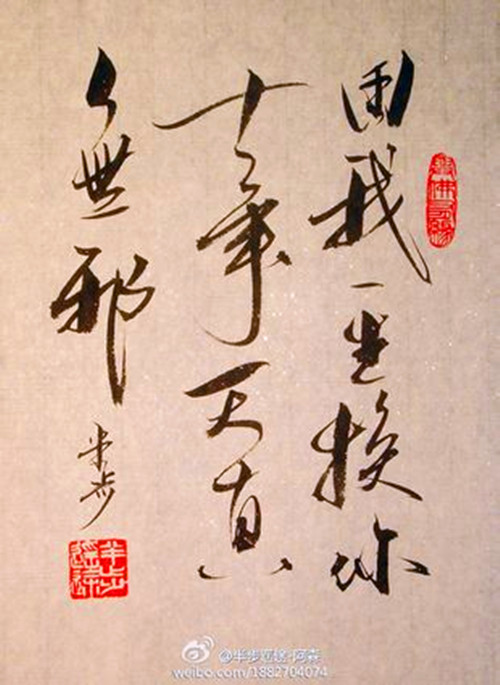 用我一生換你
十年天真
無邪
半步
weibo.com/1882704074